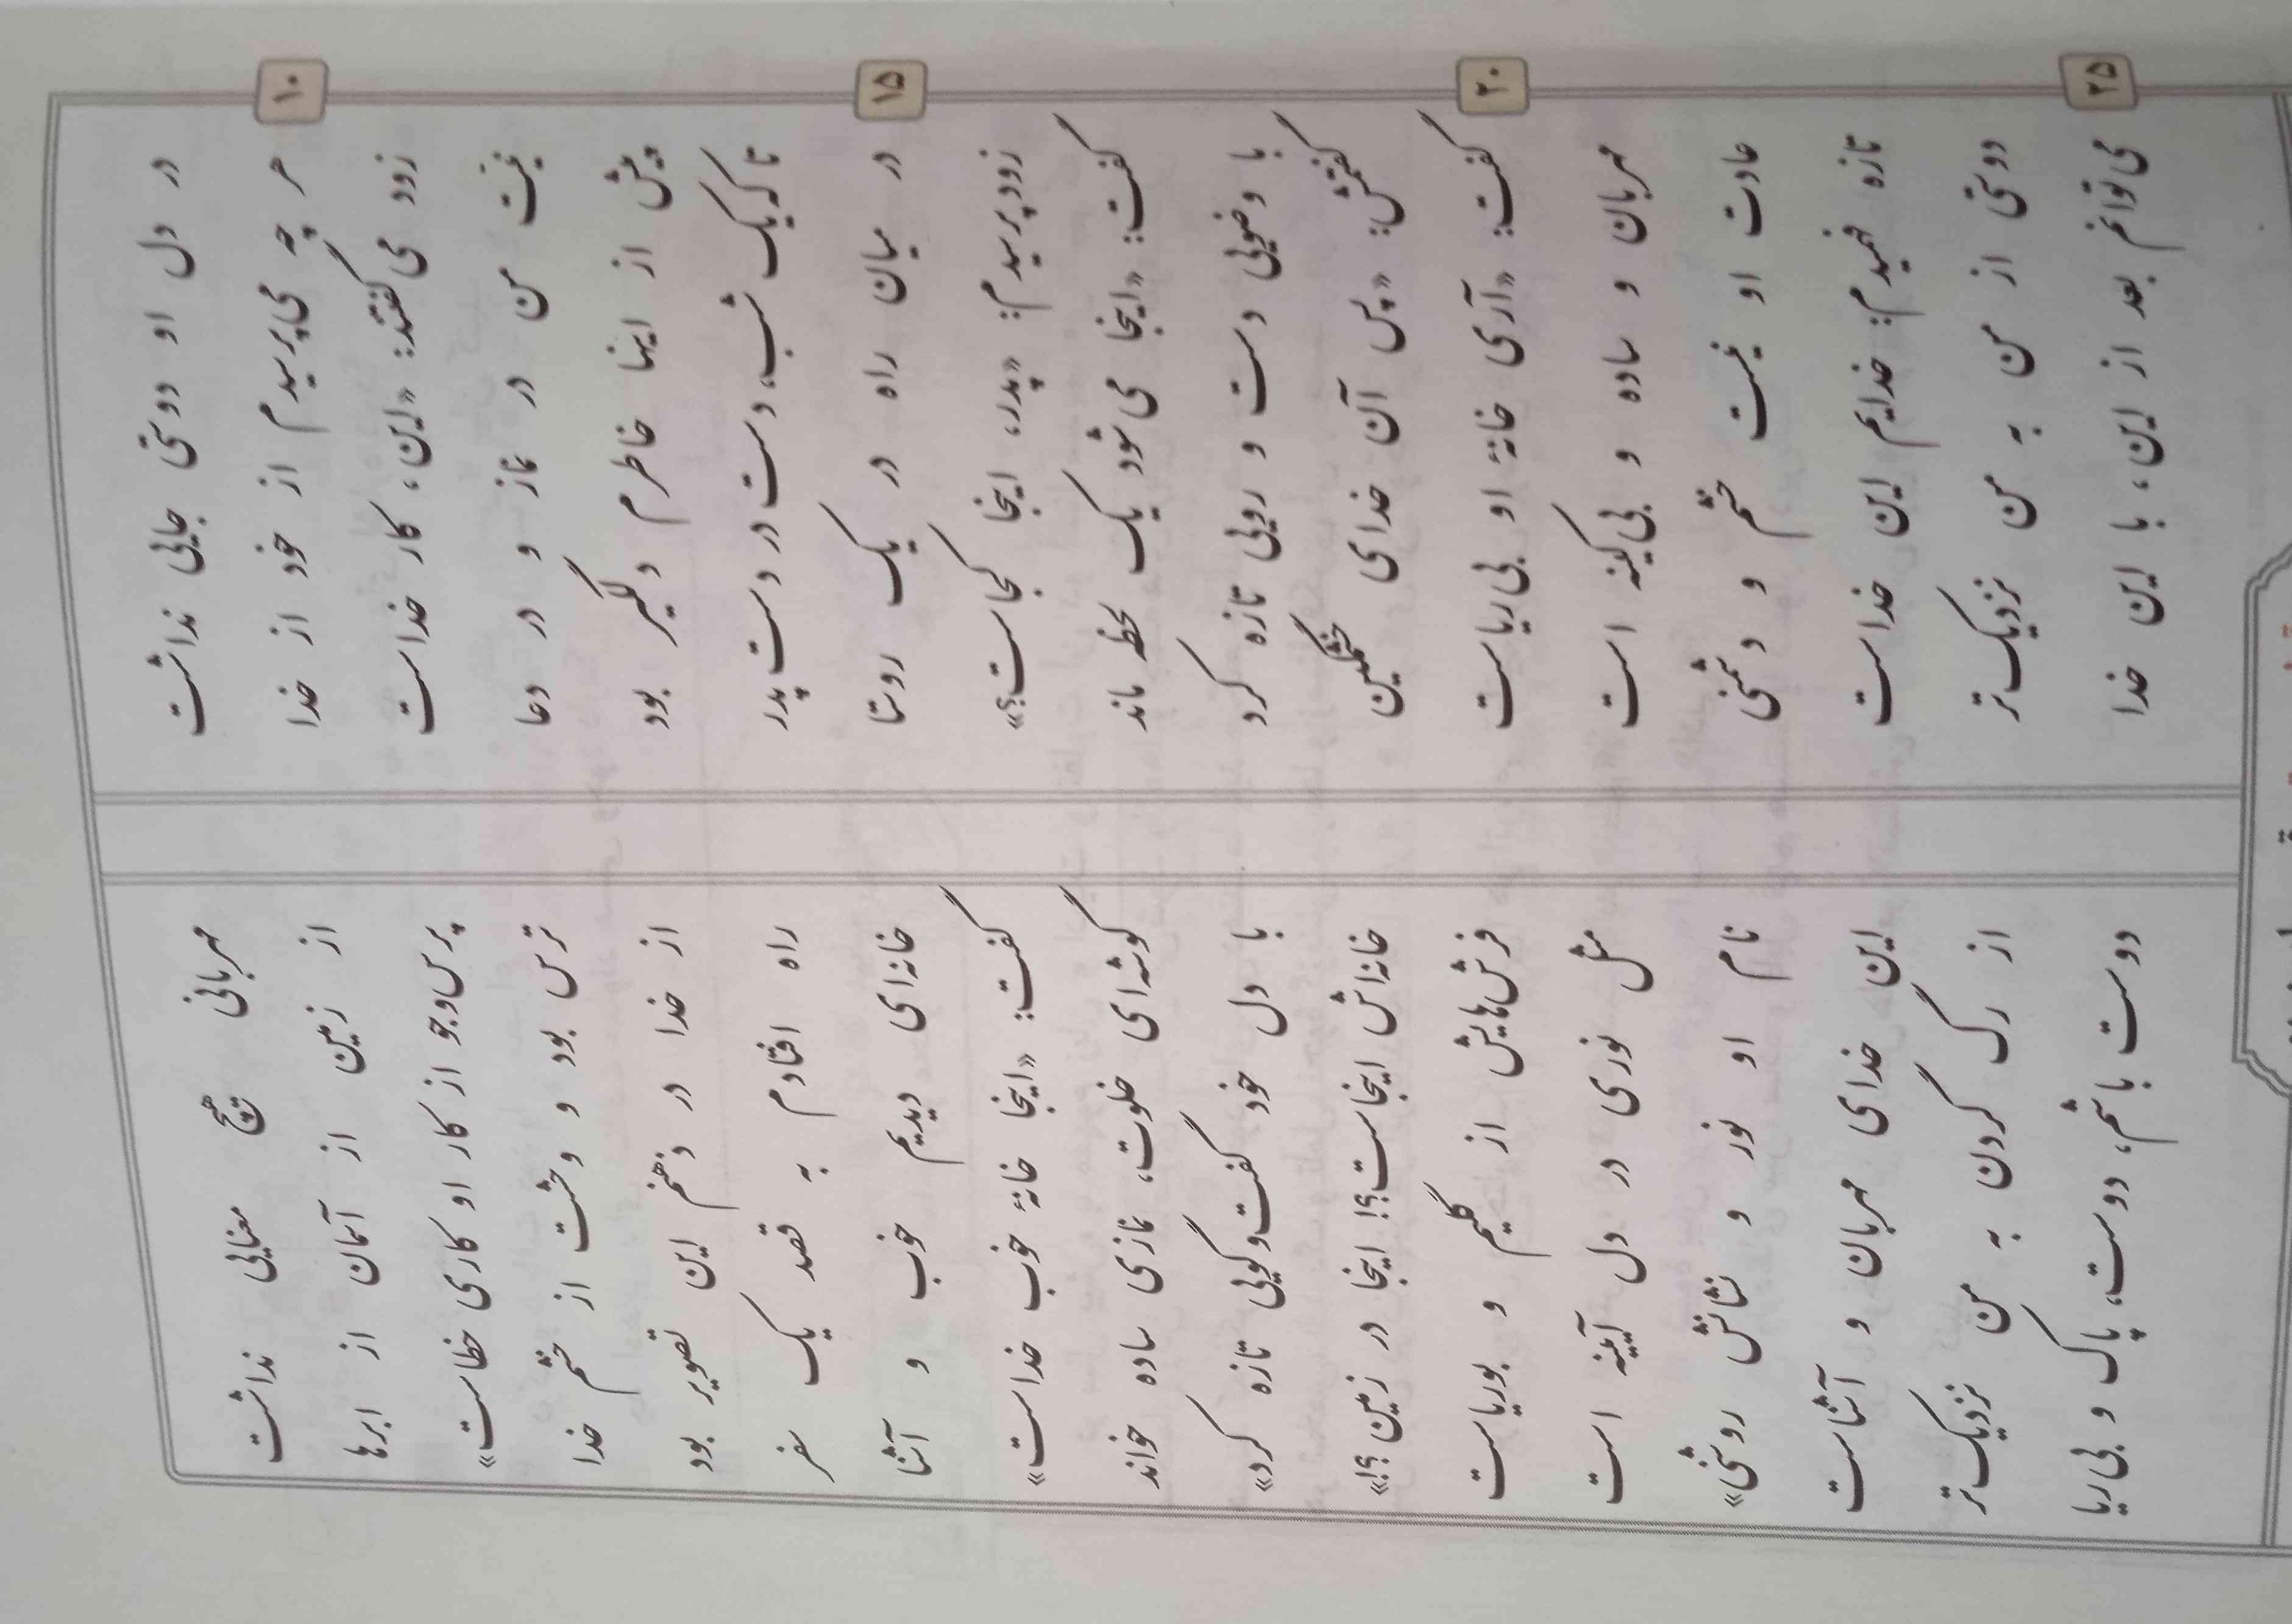 در دل او دوستی جایی نداشت مهربانی هیچ معنایی نداشت
۱۰ هر چه می‌پرسیدم از خود از خدا از زمین از آسمان از ابرها
زود می‌گفتند: «این، کار خداست پرس‌وجو از کار او کاری خطاست»
نیت من در نماز و در دعا ترس بود و وحشت از خشم خدا
پیش از اینها خاطرم دلگیر بود از خدا در ذهنم این تصویر بود
تا که یک شب، دست در دست پدر راه افتادم به قصد یک سفر
۱۵ در میان راه در یک روستا خانه‌ای دیدیم خوب و آشنا
زود پرسیدم: «پدر، اینجا کجاست؟» گفت: «اینجا خانهٔ خوب خداست»
گفت: «اینجا می‌شود یک لحظه ماند گوشه‌ای خلوت، نمازی ساده خواند
با وضویی دست و رویی تازه کرد با دل خود گفت‌وگویی تازه کرد»
گفتمش: «پس آن خدای خشمگین خانه‌اش اینجاست؟! اینجا در زمین؟!»
۲۰ گفت: «آری خانهٔ او بی‌ریاست فرش‌هایش از گلیم و بوریاست
مهربان و ساده و بی‌کینه است مثل نوری در دل آیینه است
عادت او نیست خشم و دشمنی نام او نور و نشانش روشنی»
تازه فهمیدم: خدایم این خداست این خدای مهربان و آشناست
دوستی از من به من نزدیک‌تر از رگ گردن به من نزدیک‌تر
۲۵ می‌توانم بعد از این، با این خدا دوست باشم، دوست، پاک و بی‌ریا